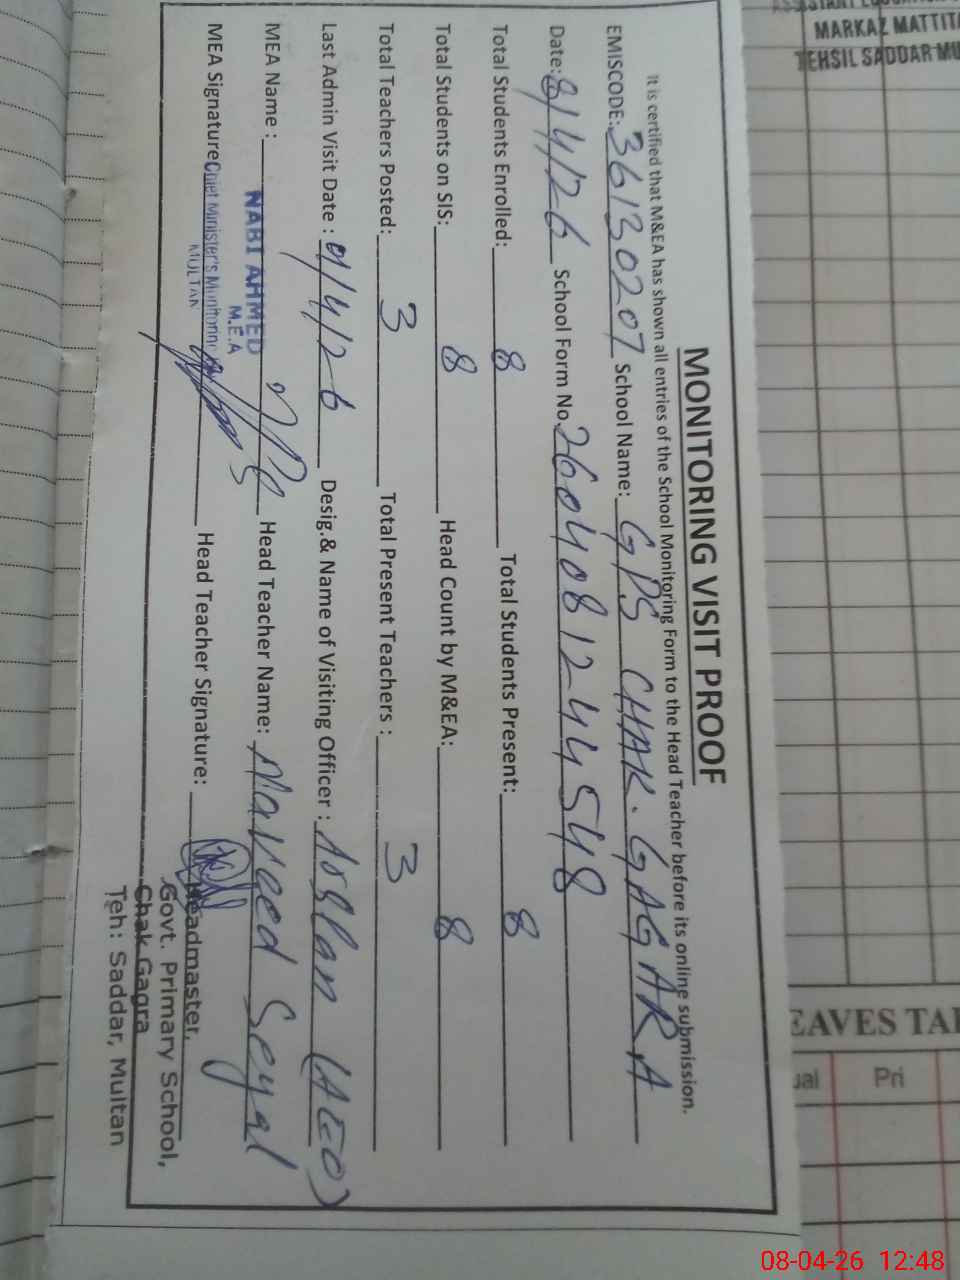 ASSISTANT EDUCATION
MARKAZ MATTITA
TEHSIL SADDAR MU
MONITORING VISIT PROOF
It is certified that M&EA has shown all entries of the School Monitoring Form to the Head Teacher before its online submission.
EMISCODE: 36130207 School Name: GPS CHAK. GAGARA
Date: 8/4/26 School Form No. 2604081244548
Total Students Enrolled: 8 Total Students Present: 8
Total Students on SIS: 8 Head Count by M&EA: 8
Total Teachers Posted: 3 Total Present Teachers : 3
Last Admin Visit Date : 01/4/26 Desig.& Name of Visiting Officer : Arslan (AEO)
MEA Name : NABI AHMED Head Teacher Name: Naveed Seyal
M.E.A
MEA Signature Chief Minister's Monitoring Head Teacher Signature:
MULTAN
Headmaster,
Govt. Primary School,
Chak Gagra
Teh: Saddar, Multan
EAVES TA
ual Pri
08-04-26 12:48